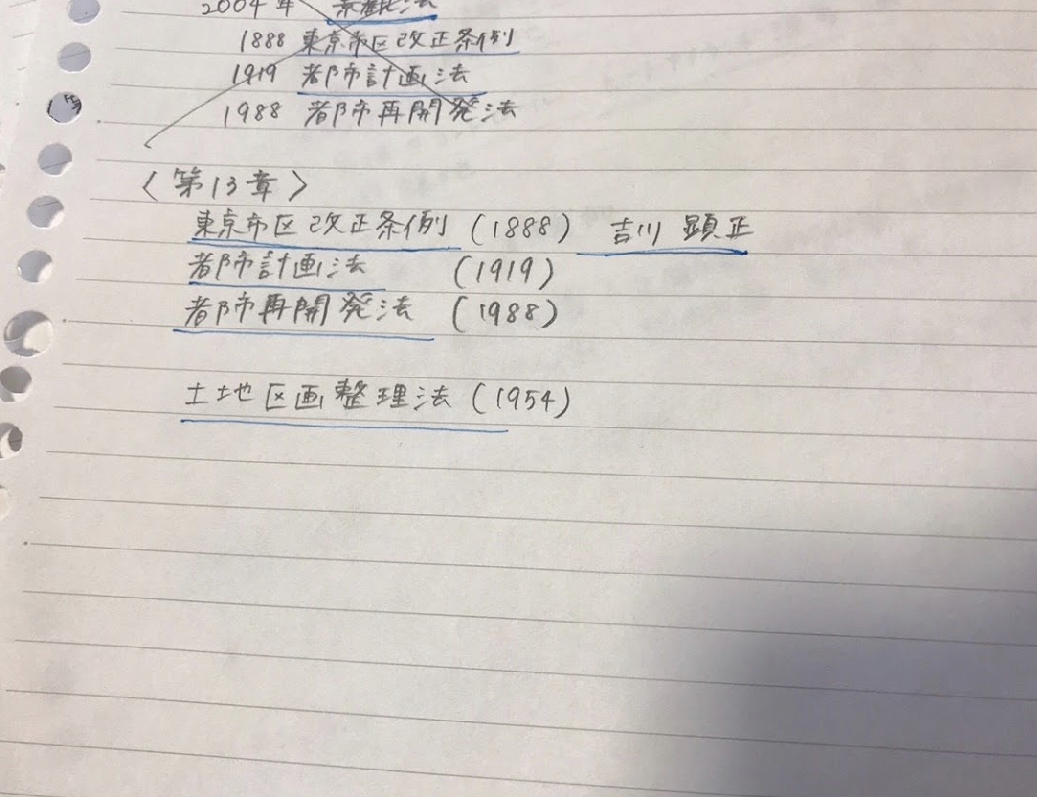 2004年 景観法
1888 東京市区改正条例
1919 都市計画法
1988 都市再開発法
〈第13章〉
東京市区改正条例 (1888) 吉川 顕正
都市計画法 (1919)
都市再開発法 (1988)
土地区画整理法 (1954)